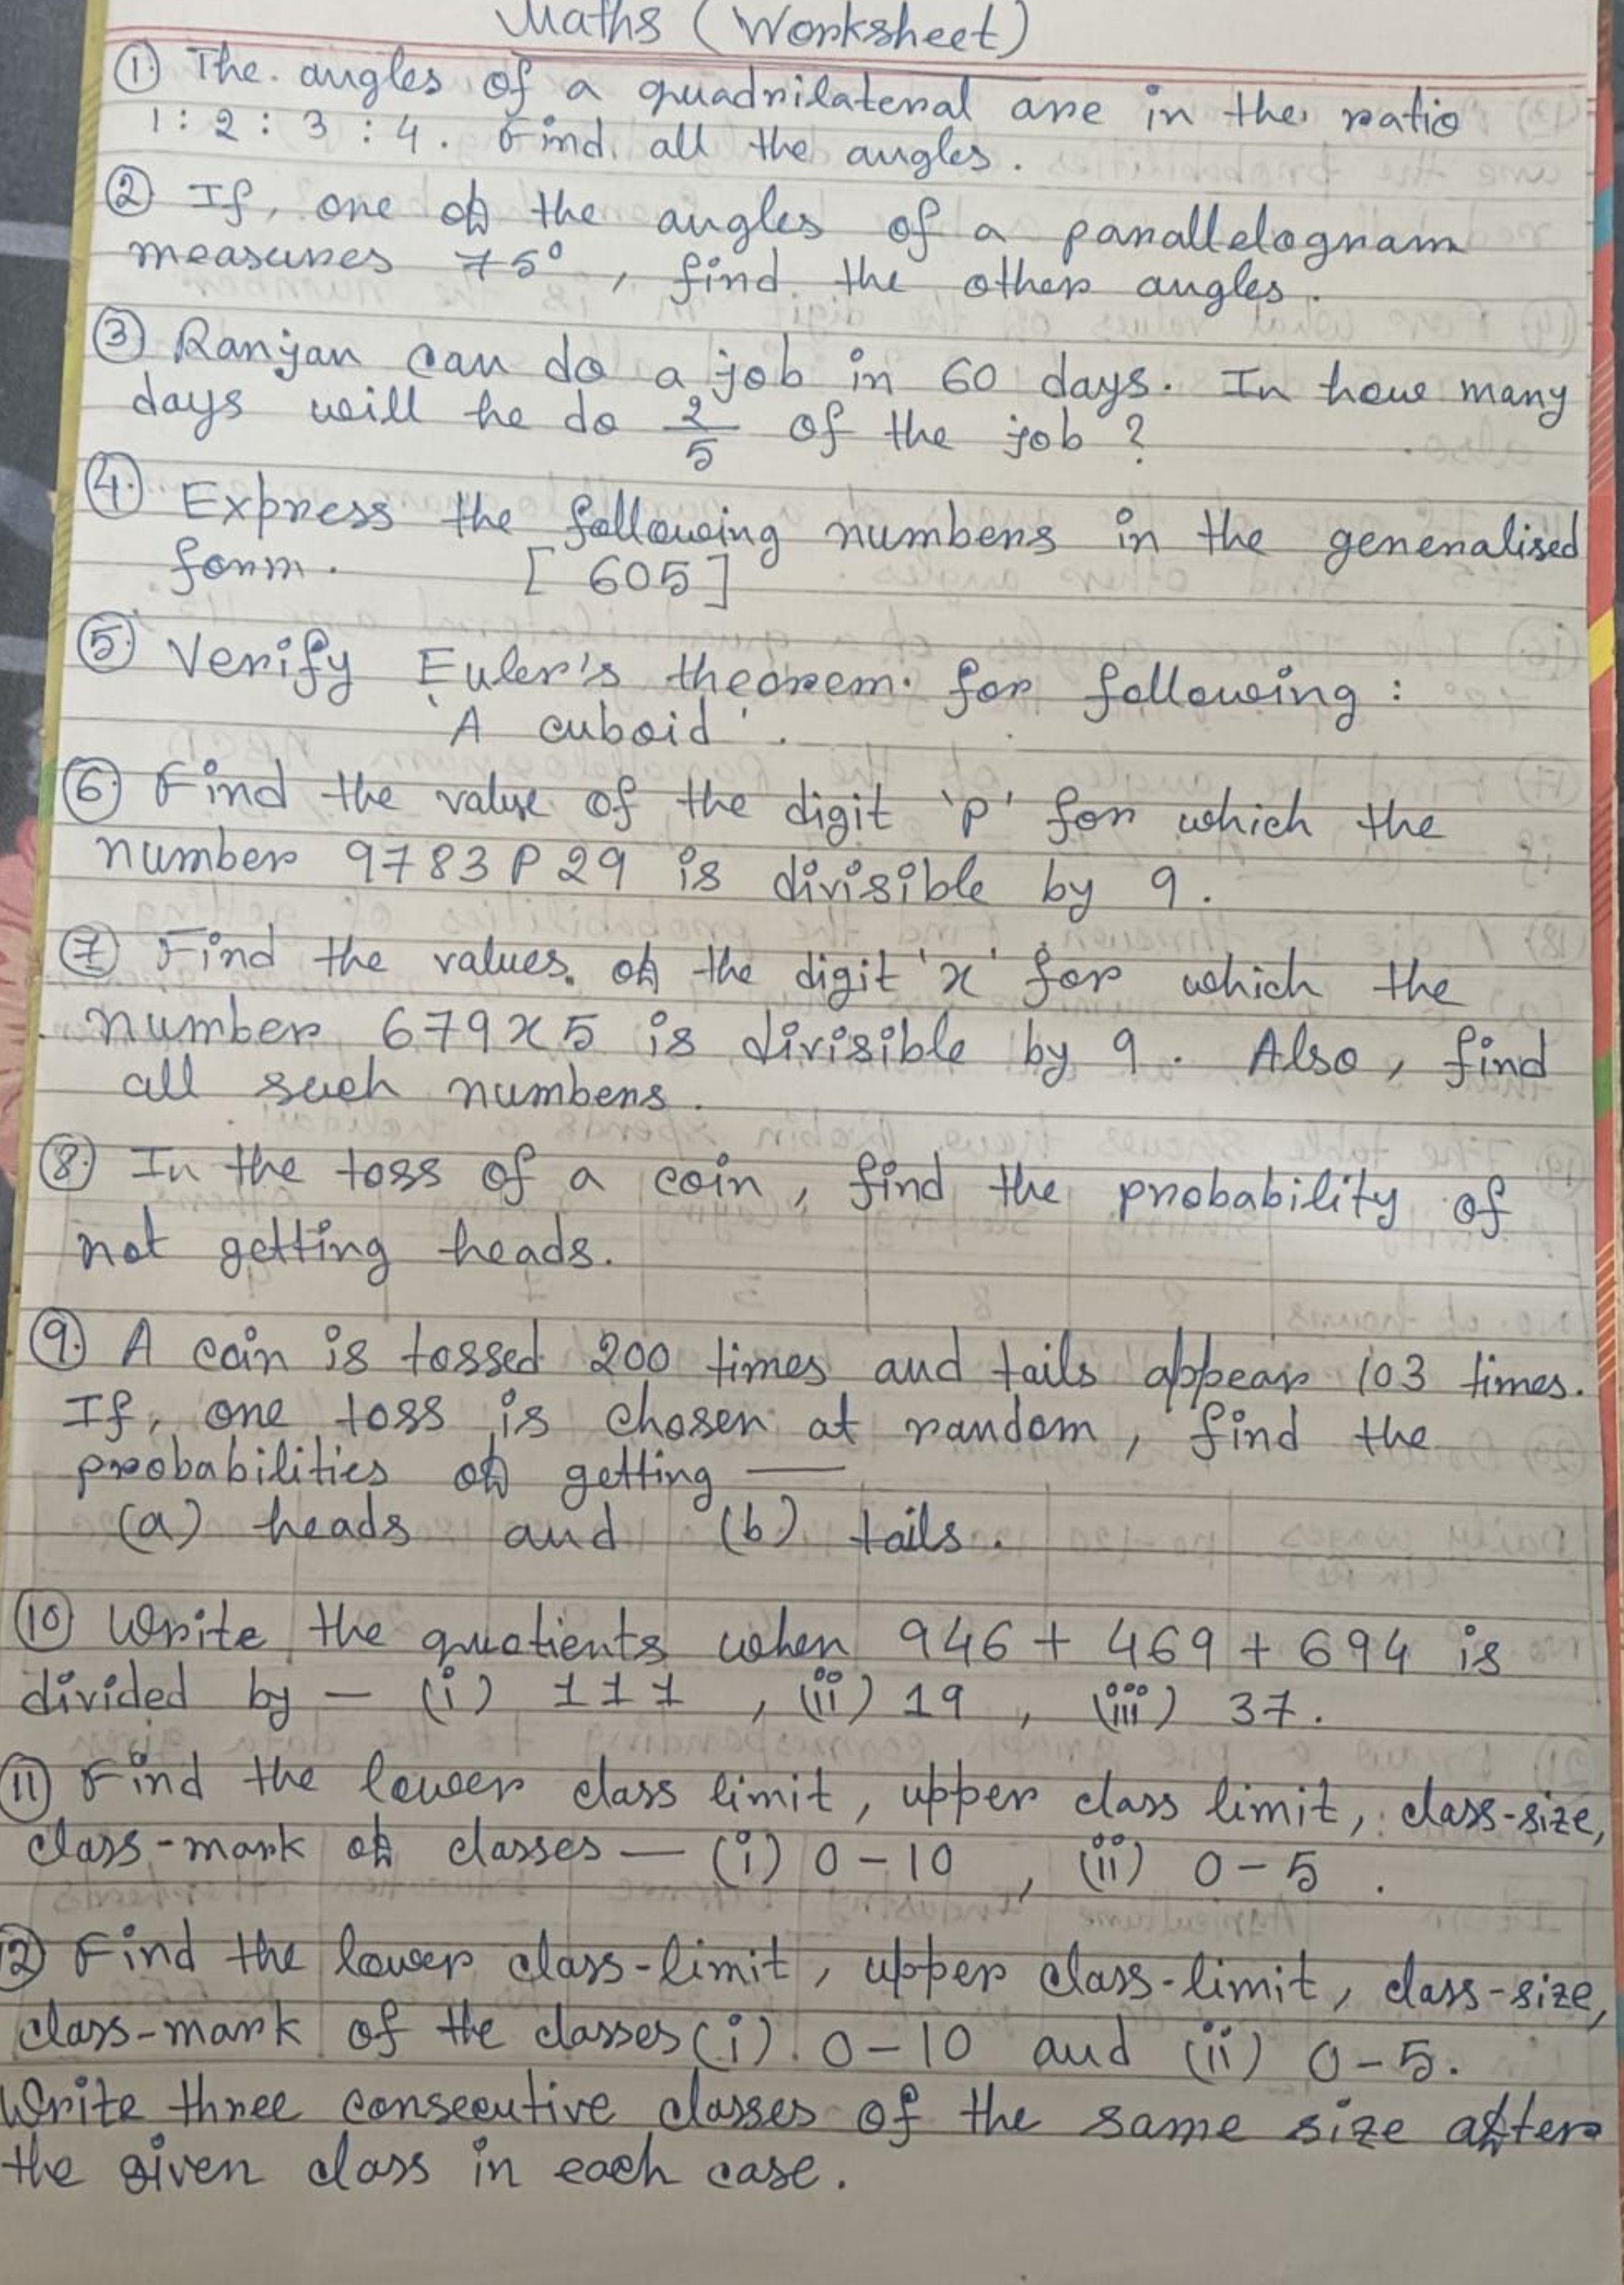 Maths (Worksheet)
① The angles of a quadrilateral are in the ratio
1 : 2 : 3 : 4. Find all the angles.
② If, one of the angles of a parallelogram
measures 75°, find the other angles.
③ Ranjan can do a job in 60 days. In how many
days will he do 2/5 of the job ?
④ Express the following numbers in the generalised
form. [ 605 ]
⑤ Verify Euler's theorem for following :
'A cuboid'.
⑥ Find the value of the digit 'p' for which the
number 9783P29 is divisible by 9.
⑦ Find the values of the digit 'x' for which the
number 679x5 is divisible by 9. Also, find
all such numbers.
⑧ In the toss of a coin, find the probability of
not getting heads.
⑨ A coin is tossed 200 times and tails appear 103 times.
If, one toss is chosen at random, find the
probabilities of getting —
(a) heads and (b) tails.
⑩ Write the quotients when 946 + 469 + 694 is
divided by — (i) 111, (ii) 19, (iii) 37.
⑪ Find the lower class limit, upper class limit, class-size,
class-mark of classes — (i) 0-10, (ii) 0-5.
⑫ Find the lower class-limit, upper class-limit, class-size,
class-mark of the classes (i) 0-10 and (ii) 0-5.
Write three consecutive classes of the same size after
the given class in each case.